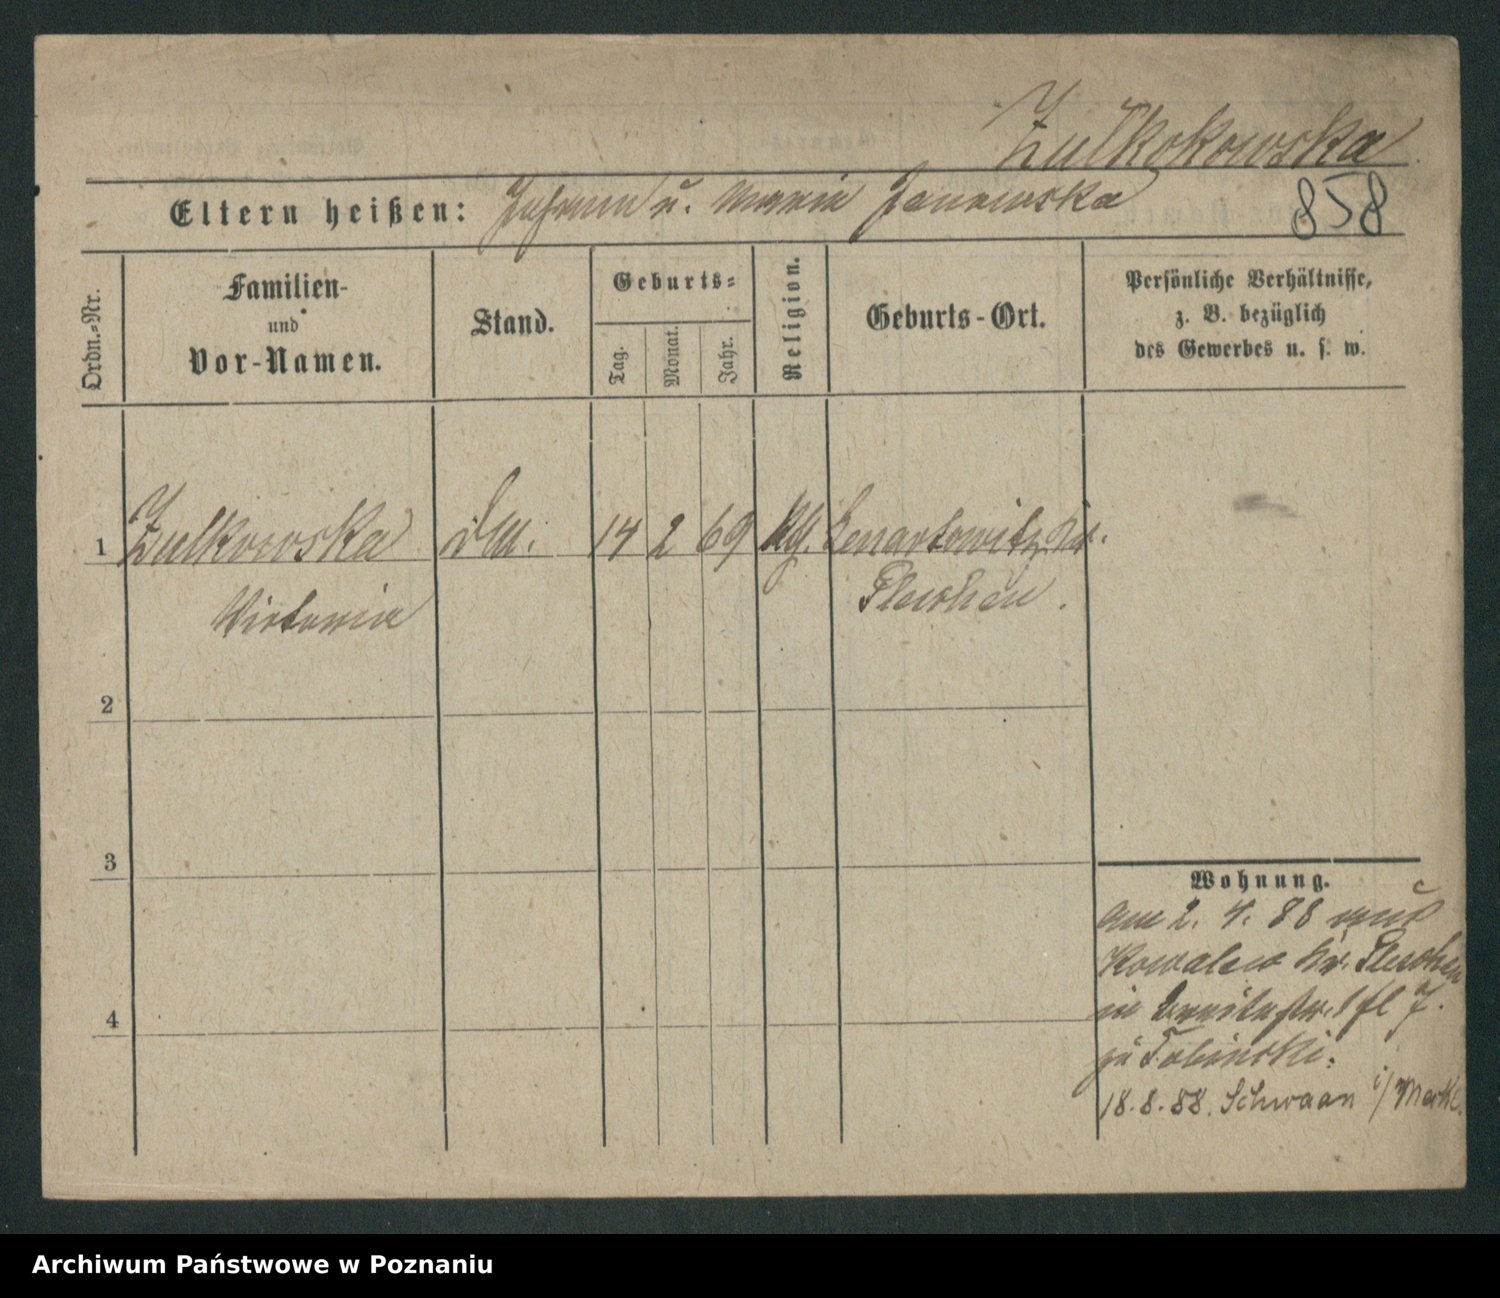 Zulkokowska
858
Eltern heißen: Johann u. Maria Janowska
Ordn.-Nr.
Familien-
und
Vor-Namen.
Stand.
Geburts-
Tag.
Monat.
Jahr.
Religion.
Geburts-Ort.
Persönliche Verhältnisse,
z. B. bezüglich
des Gewerbes u. s. w.
1 Zulkowska
Victoria
14 2 69 Lenartowitz Kr.
Pleschen.
2
3
4
Wohnung.
am 2. 4. 88 aus
Kowalew Kr. Pleschen
in Breitestr.
zu Tobinski.
18.8.88. Schwaan i/ Meckl.
Archiwum Państwowe w Poznaniu